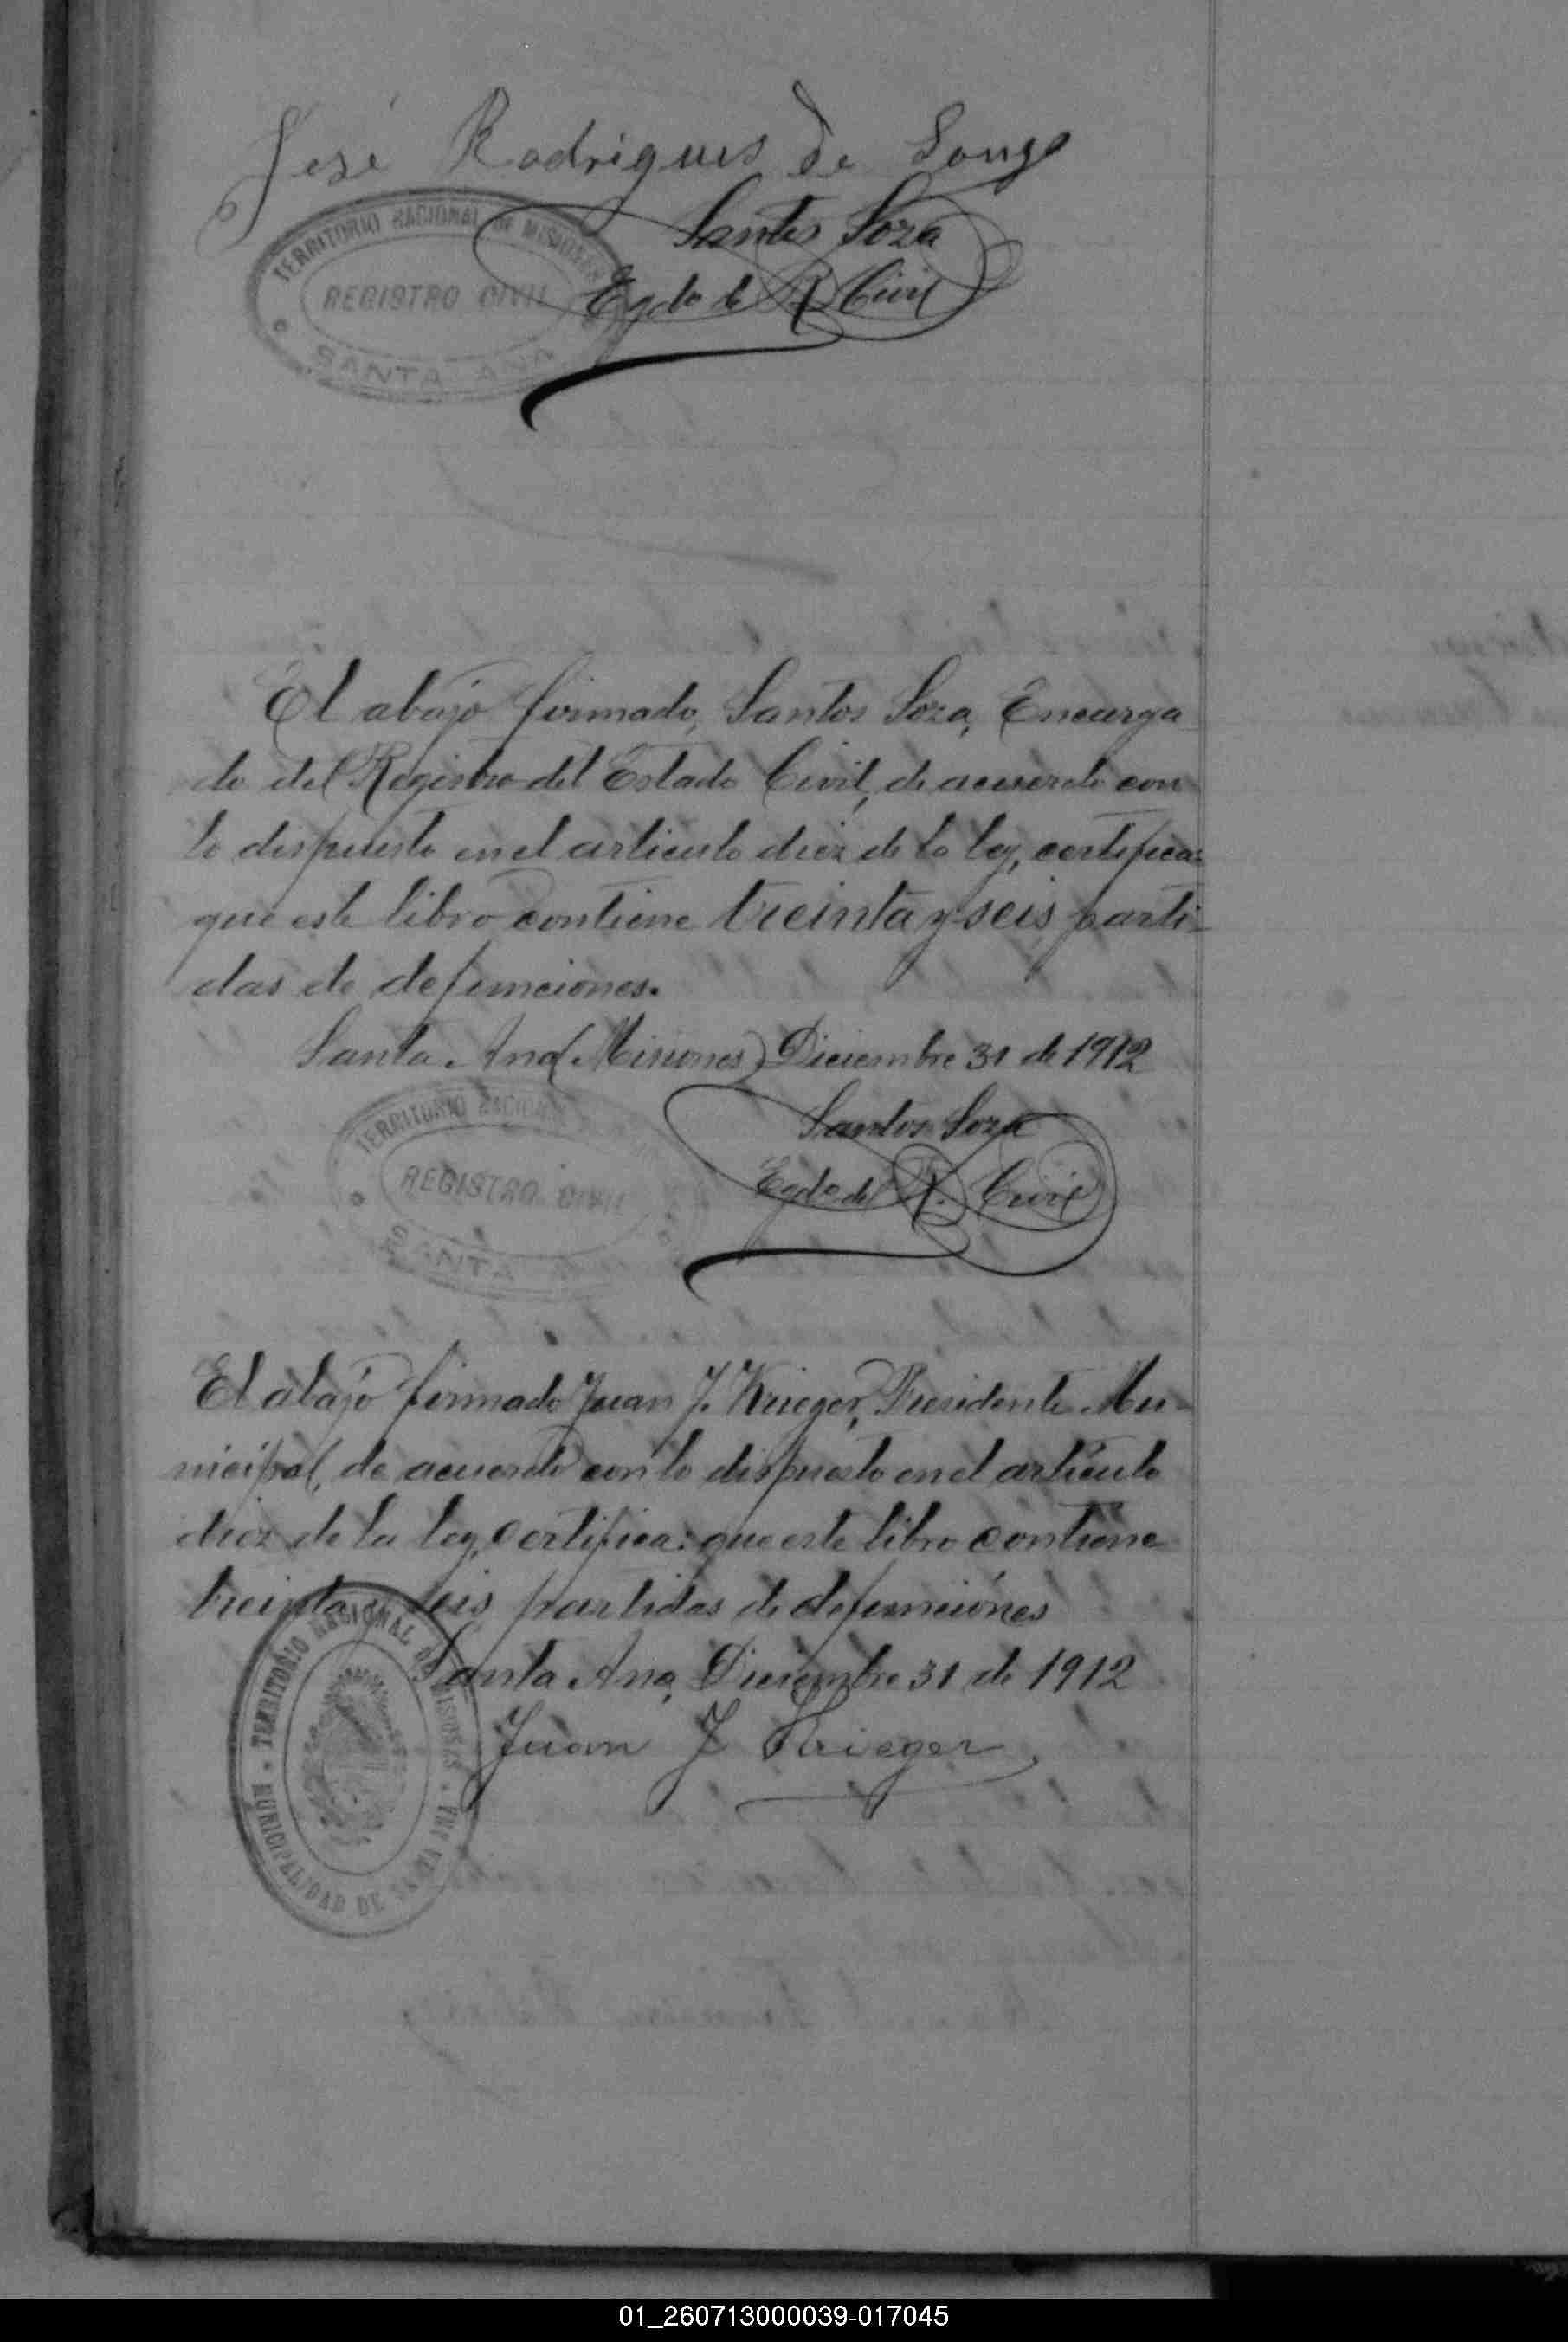 José Rodrigues de Souza
TERRITORIO NACIONAL DE MISIONES
REGISTRO CIVIL
SANTA ANA
Santos Soza
Egdo del R. Civil
El abajo firmado, Santos Soza, Encarga
do del Registro del Estado Civil, de acuerdo con
lo dispuesto en el articulo diez de la ley, certifica:
que este libro contiene treinta y seis parti-
das de defunciones.
Santa Ana (Misiones) Diciembre 31 de 1912
TERRITORIO NACIONAL
REGISTRO CIVIL
SANTA
Santos Soza
Egdo del R. Civil
El abajo firmado Juan J. Krieger, Presidente Mu-
nicipal, de acuerdo con lo dispuesto en el artículo
diez de la ley, certifica: que este libro contiene
treinta y seis partidas de defunciones
Santa Ana, Diciembre 31 de 1912
Juan J Krieger
TERRITORIO NACIONAL DE MISIONES
MUNICIPALIDAD DE SANTA ANA
01_260713000039-017045